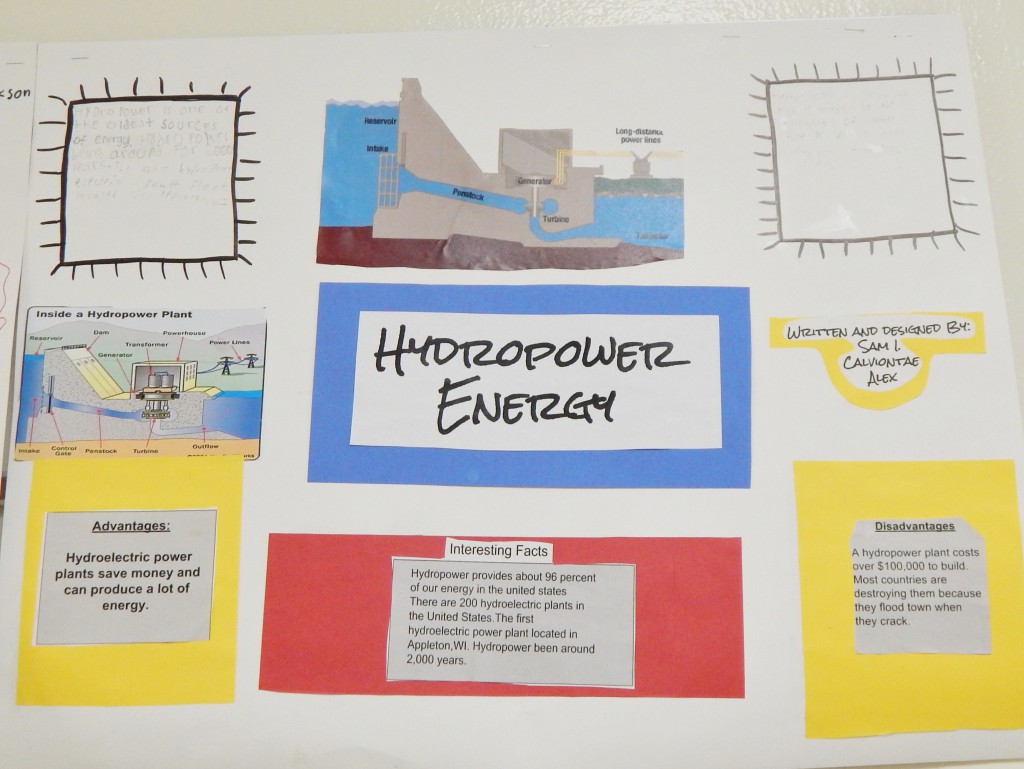 kson
Hydropower is one of
the oldest sources
of energy
Reservoir
Intake
Penstock
Generator
Turbine
Long-distance
power lines
Inside a Hydropower Plant
Reservoir
Dam
Powerhouse
Transformer
Power Lines
Generator
Intake
Control
Gate
Penstock
Turbine
Outflow
HYDROPOWER
ENERGY
WRITTEN AND DESIGNED BY:
SAM I.
CALVIONTAE
ALEX
Advantages:
Hydroelectric power
plants save money and
can produce a lot of
energy.
Interesting Facts
Hydropower provides about 96 percent
of our energy in the united states
There are 200 hydroelectric plants in
the United States.The first
hydroelectric power plant located in
Appleton,WI. Hydropower been around
2,000 years.
Disadvantages
A hydropower plant costs
over $100,000 to build.
Most countries are
destroying them because
they flood town when
they crack.